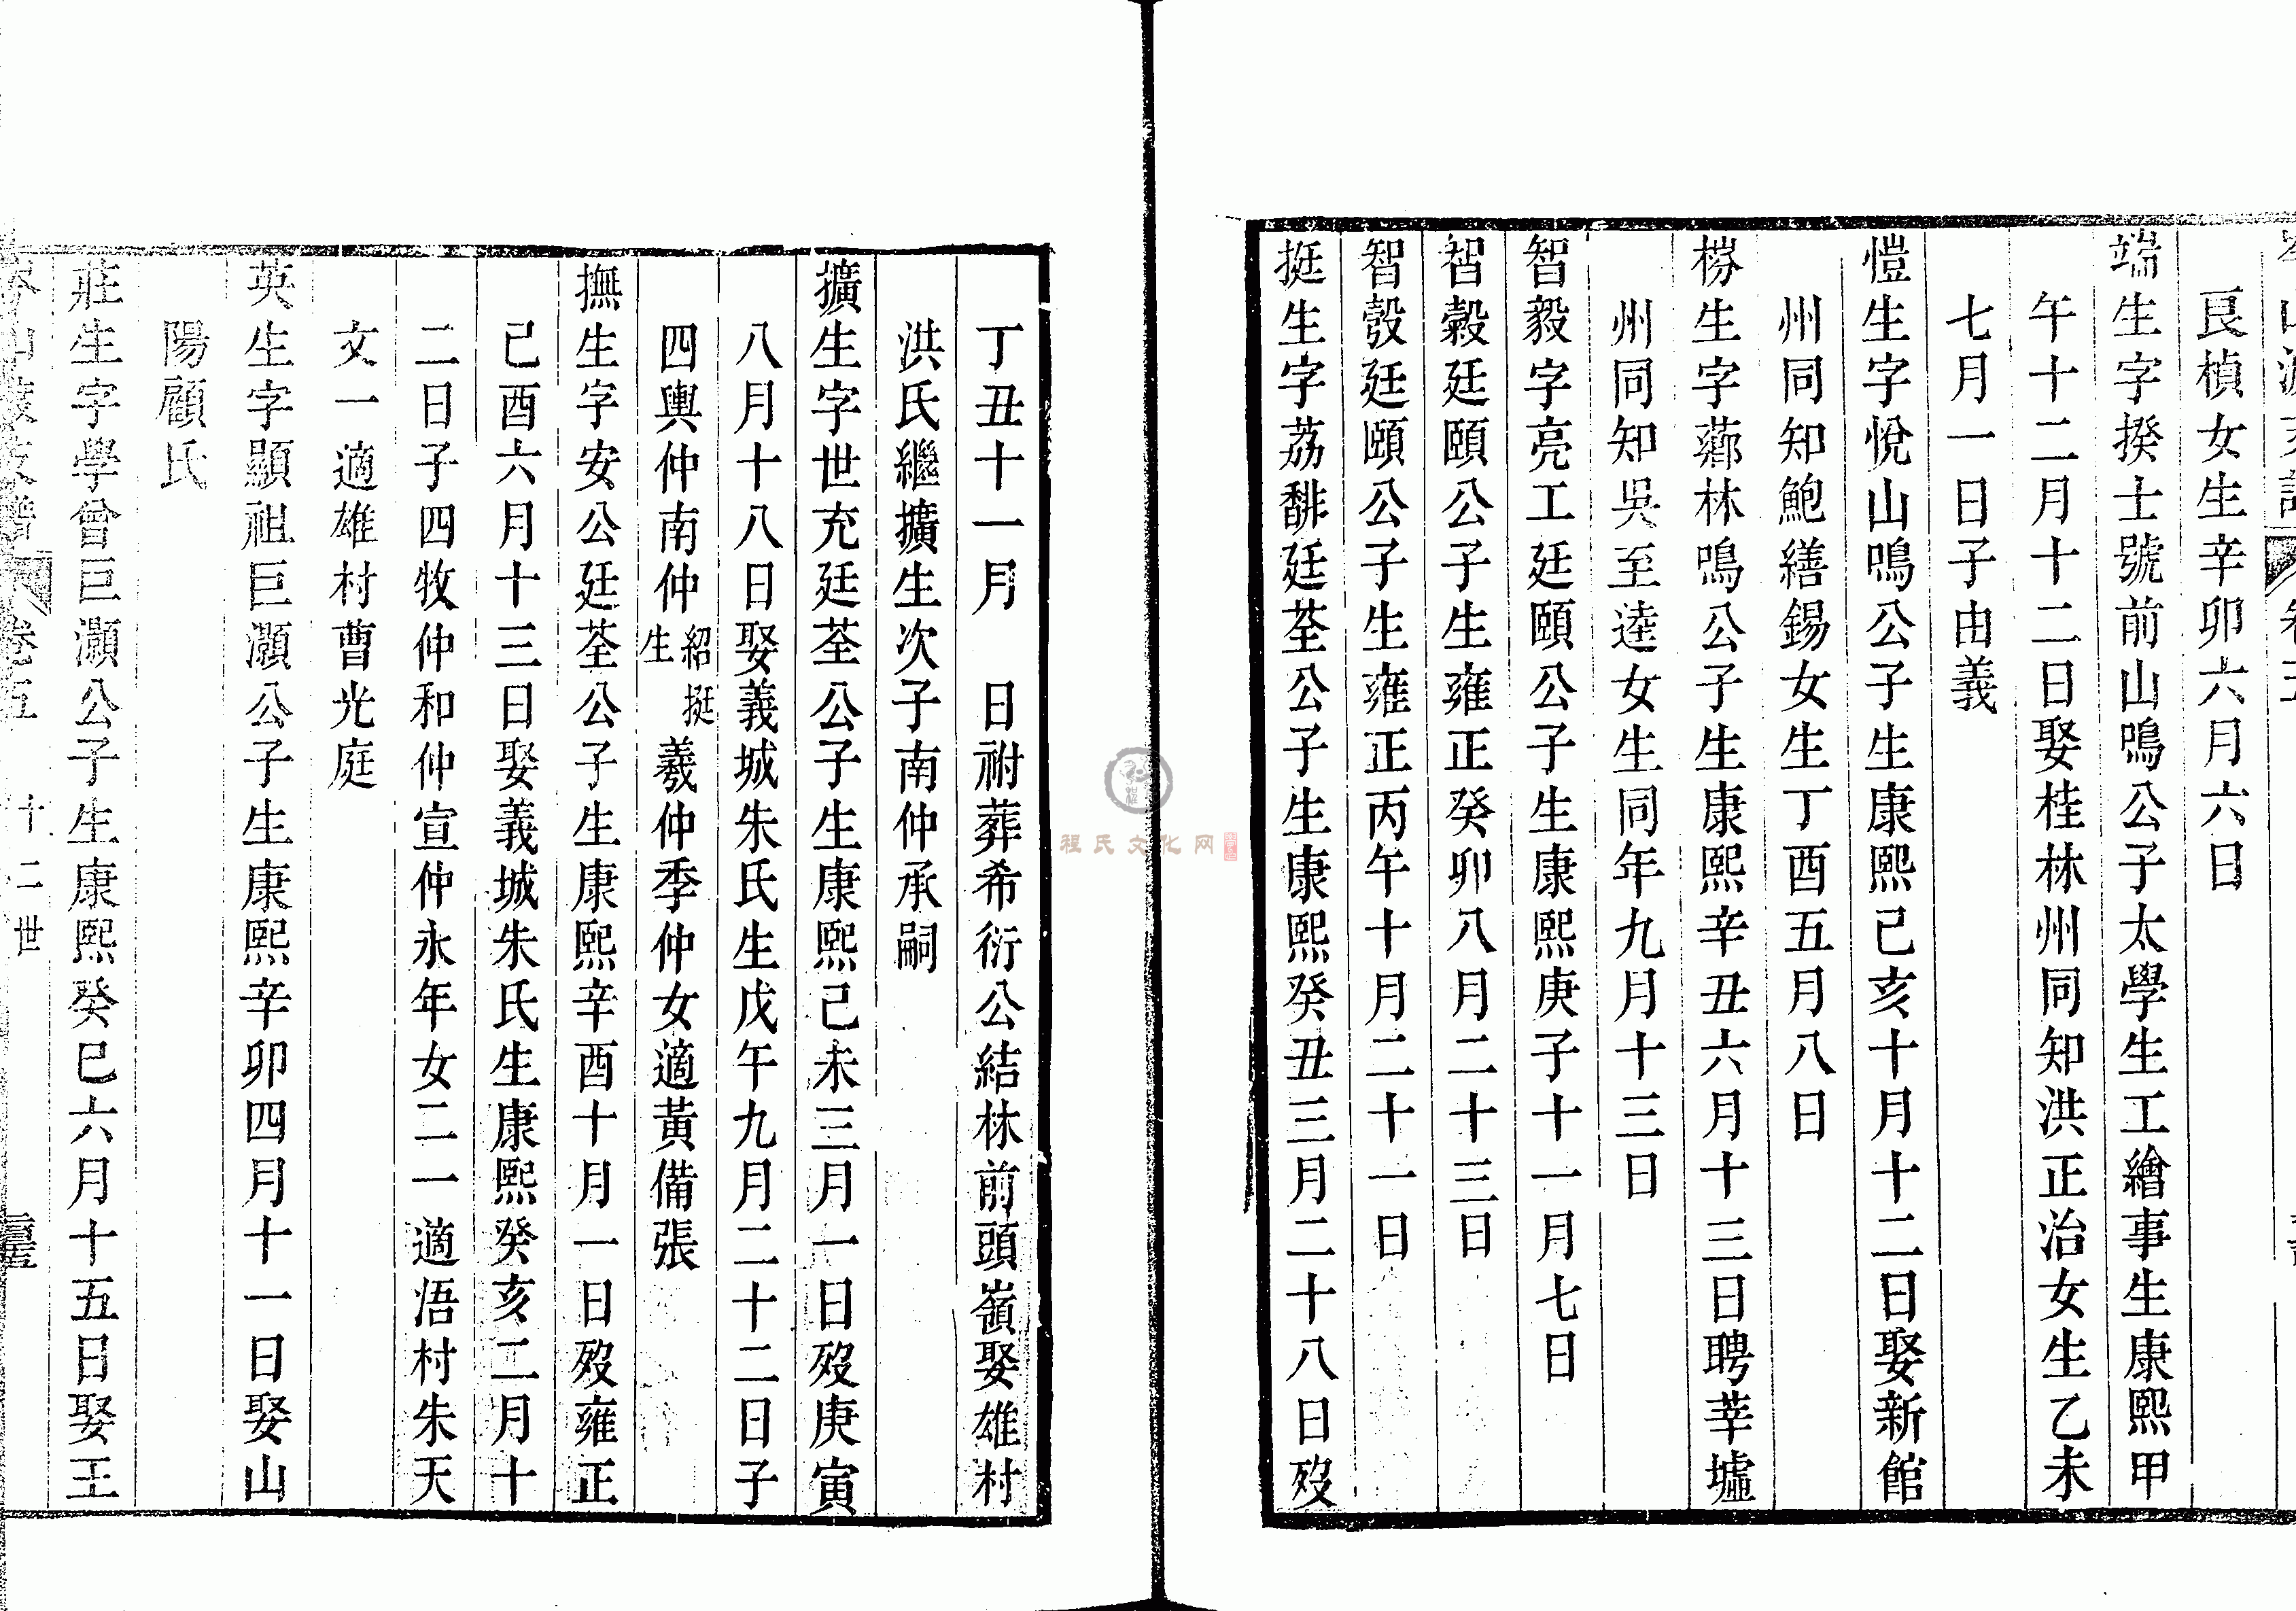 良楨女生辛卯六月六日
端生字揆士號前山鳴公子太學生工繪事生康熙甲
午十二月十二日娶桂林州同知洪正治女生乙未
七月一日子由義
愷生字悅山鳴公子生康熙己亥十月十二日娶新館
州同知鮑繕錫女生丁酉五月八日
榜生字薌林鳴公子生康熙辛丑六月十三日聘莘墟
州同知吳至逵女生同年九月十三日
智毅字亮工廷頤公子生康熙庚子十一月七日
智糓廷頤公子生雍正癸卯八月二十三日
智彀廷頤公子生雍正丙午十月二十一日
挺生字荔馡廷荃公子生康熙癸丑三月二十八日歿
丁丑十一月 日祔葬希衍公結林前頭嶺娶雄村
洪氏繼擴生次子南仲承嗣
擴生字世充廷荃公子生康熙己未三月一日歿庚寅
八月十八日娶義城朱氏生戊午九月二十二日子
四輿仲南仲紹挺生羲仲季仲女適黃備張
撫生字安公廷荃公子生康熙辛酉十月一日歿雍正
己酉六月十三日娶義城朱氏生康熙癸亥二月十
二日子四牧仲和仲宣仲永年女二一適浯村朱天
文一適雄村曹光庭
英生字顯祖巨灝公子生康熙辛卯四月十一日娶山
陽顧氏
莊生字學曾巨灝公子生康熙癸巳六月十五日娶王
岑山渡支譜 卷五 十二世
程氏文化网